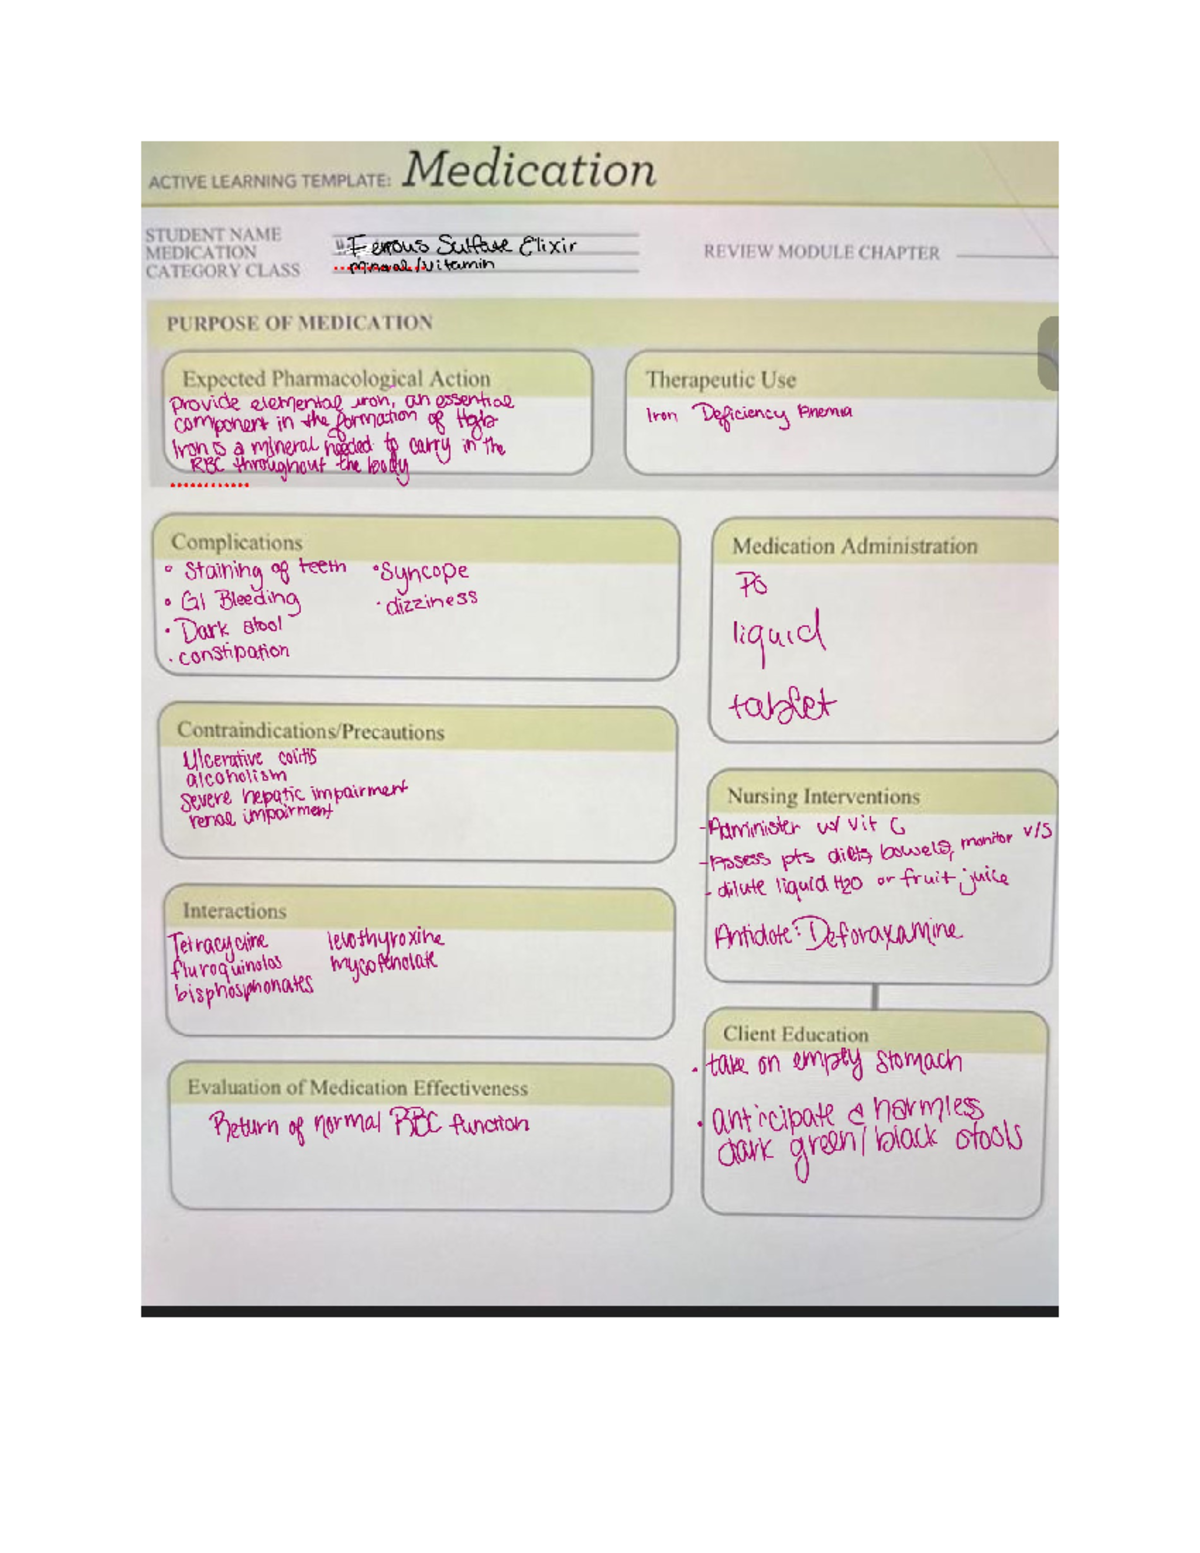 ACTIVE LEARNING TEMPLATE: Medication
STUDENT NAME
MEDICATION
CATEGORY CLASS
Ferrous Sulfate Elixir
mineral/vitamin
REVIEW MODULE CHAPTER
PURPOSE OF MEDICATION
Expected Pharmacological Action
Provide elemental iron, an essential
component in the formation of Hgb
Iron is a mineral needed to carry in the
RBC throughout the body
Therapeutic Use
Iron Deficiency Anemia
Complications
• Staining of teeth
• GI Bleeding
• Dark stool
• constipation
• Syncope
• dizziness
Medication Administration
PO
liquid
tablet
Contraindications/Precautions
Ulcerative colitis
alcoholism
severe hepatic impairment
renal impairment
Nursing Interventions
- Administer w/ vit C
- Assess pts diets, bowels, monitor v/s
- dilute liquid H2O or fruit juice
Antidote: Deforaxamine
Interactions
Tetracycline
fluroquinolos
bisphosphonates
levothyroxine
mycofenolate
Client Education
• take on empty stomach
• anticipate harmless
dark green/black stools
Evaluation of Medication Effectiveness
Return of normal RBC function